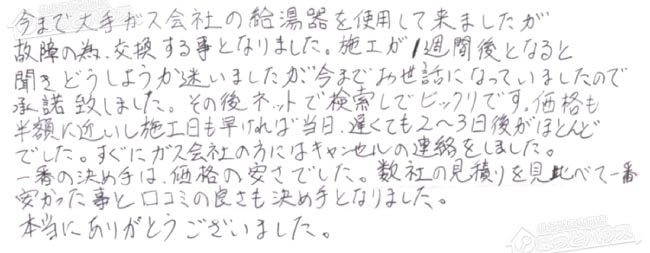 今まで大手ガス会社の給湯器を使用して来ましたが
故障の為、交換する事となりました。施工が1週間後となると
聞きどうしようか迷いましたが今までお世話になっていましたので
承諾致しました。その後ネットで検索してビックリです。価格も
半額に近いし施工日も早ければ当日、遅くても2〜3日後がほとんど
でした。すぐにガス会社の方にはキャンセルの連絡をしました。
一番の決め手は、価格の安さでした。数社の見積りを見比べて一番
安かった事と口コミの良さも決め手となりました。
本当にありがとうございました。